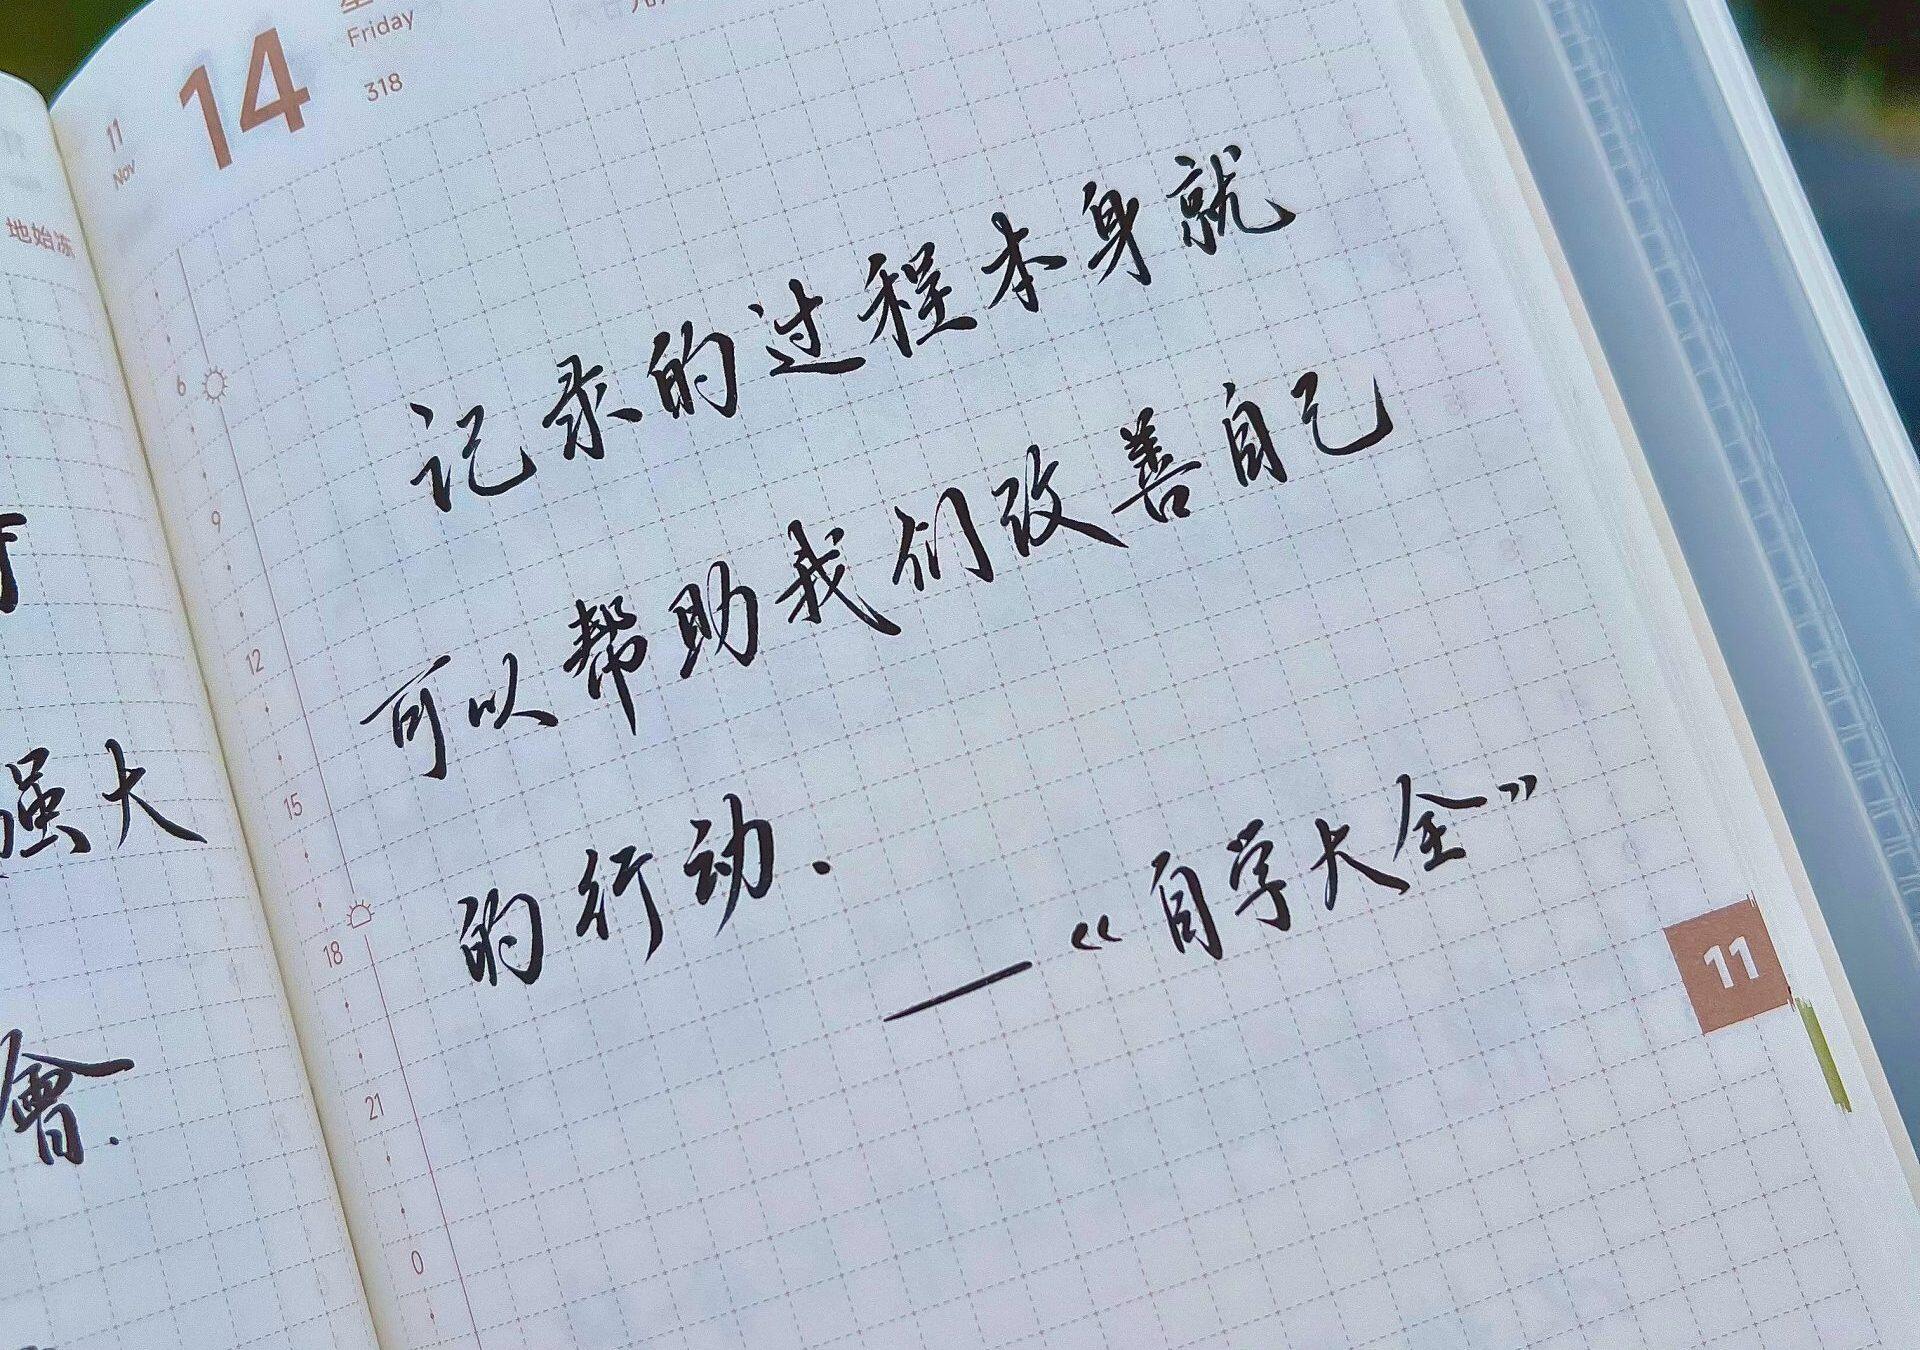 地始冻
强大
會.
11
Nov
14
Friday
318
记录的过程本身就
可以帮助我们改善自己
的行动.
——《自学大全》
6
9
12
15
18
21
0
11